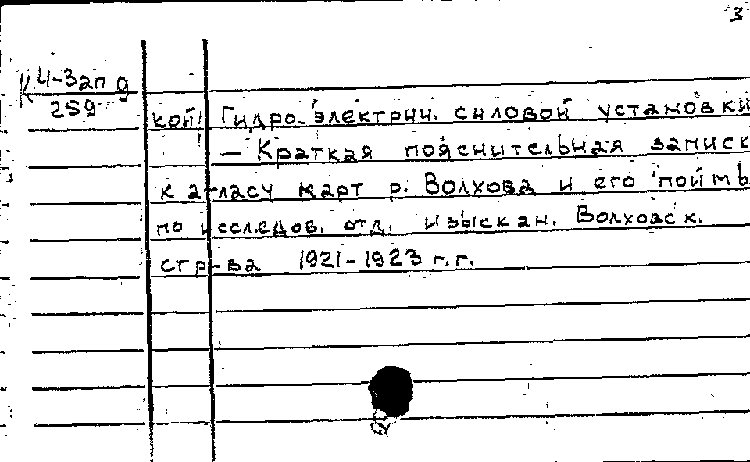 3
К 4-Зап 9
259
кой) Гидро-электрич. силовой установки
— Краткая пояснительная записк
к атласу карт р. Волхова и его поймы
по исследов. отд. изыскан. Волховск.
стр-ва 1921-1923 г.г.